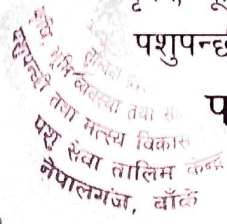 पशुपन्छ
प
कृषि, भूमि व्यवस्था तथा स
पशुपन्छी तथा मत्स्य विकास
पशु सेवा तालिम केन्द्र
नेपालगंज, बाँके